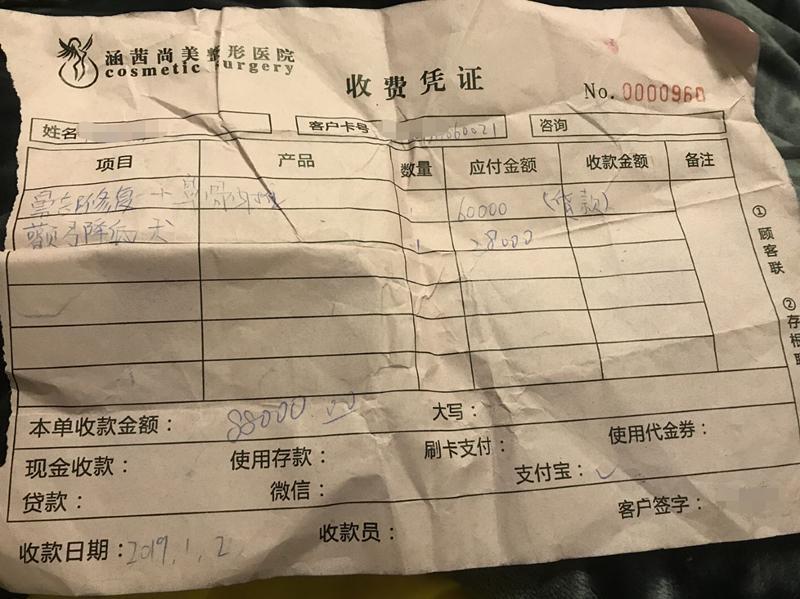 涵茜尚美整形医院
cosmetic surgery
收费凭证
No. 0000960
姓名 客户卡号 60021 咨询
项目 产品 数量 应付金额 收款金额 备注
修复 + 1 60000 (贷款)
颧弓降低 1 28000
① 顾客联
② 存根联
本单收款金额： 88000.00 大写：
现金收款： 使用存款： 刷卡支付： 使用代金券：
贷款： 微信： 支付宝： ✓
收款日期：2019.1.2 收款员： 客户签字：